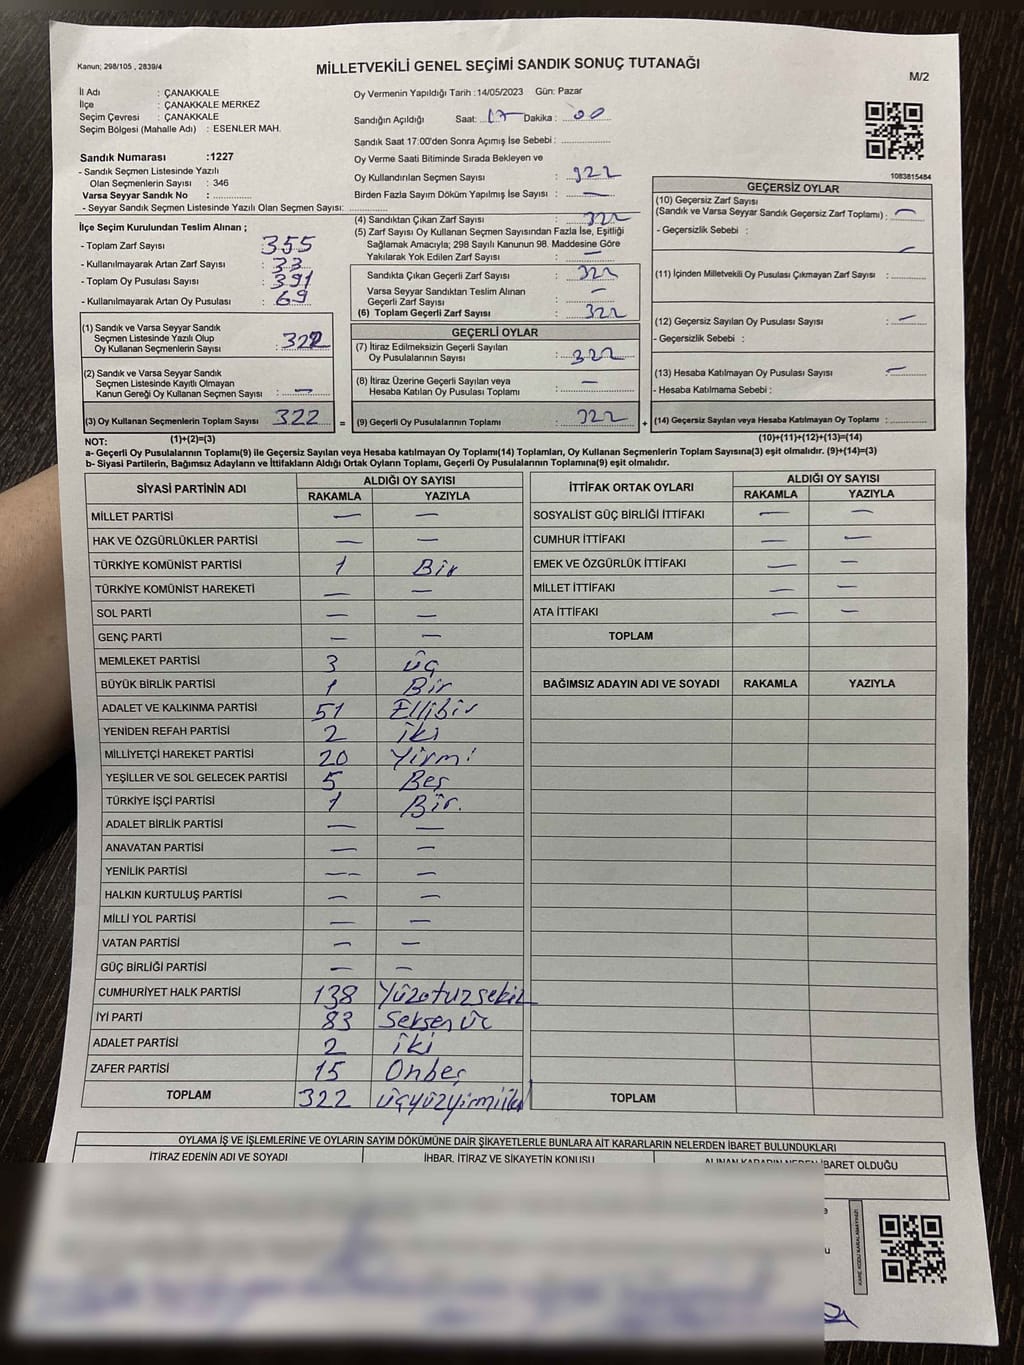 Kanun; 298/105 , 2839/4
MİLLETVEKİLİ GENEL SEÇİMİ SANDIK SONUÇ TUTANAĞI
M/2
İl Adı : ÇANAKKALE
İlçe : ÇANAKKALE MERKEZ
Seçim Çevresi : ÇANAKKALE
Seçim Bölgesi (Mahalle Adı) : ESENLER MAH.
Sandık Numarası :1227
- Sandık Seçmen Listesinde Yazılı
Olan Seçmenlerin Sayısı : 346
Varsa Seyyar Sandık No : ..............
- Seyyar Sandık Seçmen Listesinde Yazılı Olan Seçmen Sayısı: ..............
Oy Vermenin Yapıldığı Tarih :14/05/2023 Gün: Pazar
Sandığın Açıldığı Saat: 17 Dakika : 00
Sandık Saat 17:00'den Sonra Açımış İse Sebebi : ..............
Oy Verme Saati Bitiminde Sırada Bekleyen ve
Oy Kullandırılan Seçmen Sayısı : 322
Birden Fazla Sayım Döküm Yapılmış İse Sayısı : —
1083815484
İlçe Seçim Kurulundan Teslim Alınan ;
- Toplam Zarf Sayısı : 355
- Kullanılmayarak Artan Zarf Sayısı : 33
- Toplam Oy Pusulası : 391
- Kullanılmayarak Artan Oy Pusulası : 69
(1) Sandık ve Varsa Seyyar Sandık
Seçmen Listesinde Yazılı Olup
Oy Kullanan Seçmenlerin Sayısı : 322
(2) Sandık ve Varsa Seyyar Sandık
Seçmen Listesinde Kayıtlı Olmayan
Kanun Gereği Oy Kullanan Seçmen Sayısı : —
(3) Oy Kullanan Seçmenlerin Toplam Sayısı 322
(1)+(2)=(3)
(4) Sandıktan Çıkan Zarf Sayısı : 322
(5) Zarf Sayısı Oy Kullanan Seçmen Sayısından Fazla İse, Eşitliği
Sağlamak Amacıyla; 298 Sayılı Kanunun 98. Maddesine Göre
Yakılarak Yok Edilen Zarf Sayısı : —
Sandıkta Çıkan Geçerli Zarf Sayısı : 322
Varsa Seyyar Sandıktan Teslim Alınan
Geçerli Zarf Sayısı : —
(6) Toplam Geçerli Zarf Sayısı : 322
GEÇERLİ OYLAR
(7) İtiraz Edilmeksizin Geçerli Sayılan
Oy Pusulalarının Sayısı : 322
(8) İtiraz Üzerine Geçerli Sayılan veya
Hesaba Katılan Oy Pusulası Toplamı : —
= (9) Geçerli Oy Pusulalarının Toplamı : 322 +
GEÇERSİZ OYLAR
(10) Geçersiz Zarf Sayısı
(Sandık ve Varsa Seyyar Sandık Geçersiz Zarf Toplamı) : —
- Geçersizlik Sebebi :
(11) İçinden Milletvekili Oy Pusulası Çıkmayan Zarf Sayısı : —
(12) Geçersiz Sayılan Oy Pusulası Sayısı : —
- Geçersizlik Sebebi :
(13) Hesaba Katılmayan Oy Pusulası Sayısı : —
- Hesaba Katılmama Sebebi :
(14) Geçersiz Sayılan veya Hesaba Katılmayan Oy Toplamı : ..............
(10)+(11)+(12)+(13)=(14)
NOT:
a- Geçerli Oy Pusulalarının Toplamı(9) ile Geçersiz Sayılan veya Hesaba katılmayan Oy Toplamı(14) Toplamları, Oy Kullanan Seçmenlerin Toplam Sayısına(3) eşit olmalıdır. (9)+(14)=(3)
b- Siyasi Partilerin, Bağımsız Adayların ve İttifakların Aldığı Ortak Oyların Toplamı, Geçerli Oy Pusulalarının Toplamına(9) eşit olmalıdır.
SİYASİ PARTİNİN ADI ALDIĞI OY SAYISI
RAKAMLA YAZIYLA
MİLLET PARTİSİ — —
HAK VE ÖZGÜRLÜKLER PARTİSİ — —
TÜRKİYE KOMÜNİST PARTİSİ 1 Bir
TÜRKİYE KOMÜNİST HAREKETİ — —
SOL PARTİ — —
GENÇ PARTİ — —
MEMLEKET PARTİSİ 3 üç
BÜYÜK BİRLİK PARTİSİ 1 Bir
ADALET VE KALKINMA PARTİSİ 51 Ellibir
YENİDEN REFAH PARTİSİ 2 iki
MİLLİYETÇİ HAREKET PARTİSİ 20 Yirmi
YEŞİLLER VE SOL GELECEK PARTİSİ 5 Beş
TÜRKİYE İŞÇİ PARTİSİ 1 Bir.
ADALET BİRLİK PARTİSİ — —
ANAVATAN PARTİSİ — —
YENİLİK PARTİSİ -- —
HALKIN KURTULUŞ PARTİSİ — —
MİLLİ YOL PARTİSİ — —
VATAN PARTİSİ — —
GÜÇ BİRLİĞİ PARTİSİ — —
CUMHURİYET HALK PARTİSİ 138 Yüzotuzsekiz
İYİ PARTİ 83 Seksenüç
ADALET PARTİSİ 2 iki
ZAFER PARTİSİ 15 Onbeş
TOPLAM 322 üçyüzyirmiiki
İTTİFAK ORTAK OYLARI ALDIĞI OY SAYISI
RAKAMLA YAZIYLA
SOSYALİST GÜÇ BİRLİĞİ İTTİFAKI — —
CUMHUR İTTİFAKI — —
EMEK VE ÖZGÜRLÜK İTTİFAKI — —
MİLLET İTTİFAKI — —
ATA İTTİFAKI — —
TOPLAM
BAĞIMSIZ ADAYIN ADI VE SOYADI RAKAMLA YAZIYLA
TOPLAM
OYLAMA İŞ VE İŞLEMLERİNE VE OYLARIN SAYIM DÖKÜMÜNE DAİR ŞİKAYETLERLE BUNLARA AİT KARARLARIN NELERDEN İBARET BULUNDUKLARI
İTİRAZ EDENİN ADI VE SOYADI
İHBAR, İTİRAZ VE ŞİKAYETİN KONUSU
ALINAN KARARIN NEDEN İBARET OLDUĞU
KARE KODU KARALAMAYINIZ!